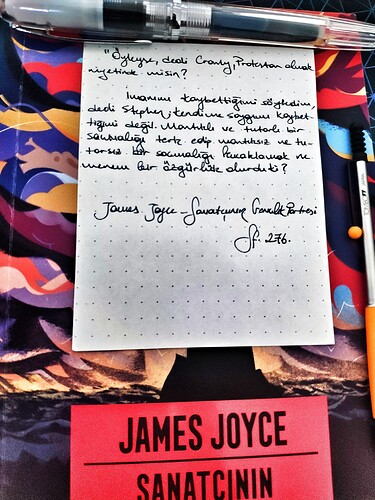 "Öyleyse, dedi Cranly, Protestan olmak
niyetinde misin?
İmanımı kaybettiğimi söyledim,
dedi Stephen, kendime saygımı kaybet-
tiğimi değil. Mantıklı ve tutarlı bir
saçmalığı terk edip mantıksız ve tu-
tarsız bir saçmalığı kucaklamak ne
menem bir özgürlük olurdu ki?
James Joyce - Sanatçının Gençlik Portresi
Sf. 276.
JAMES JOYCE
SANATÇININ